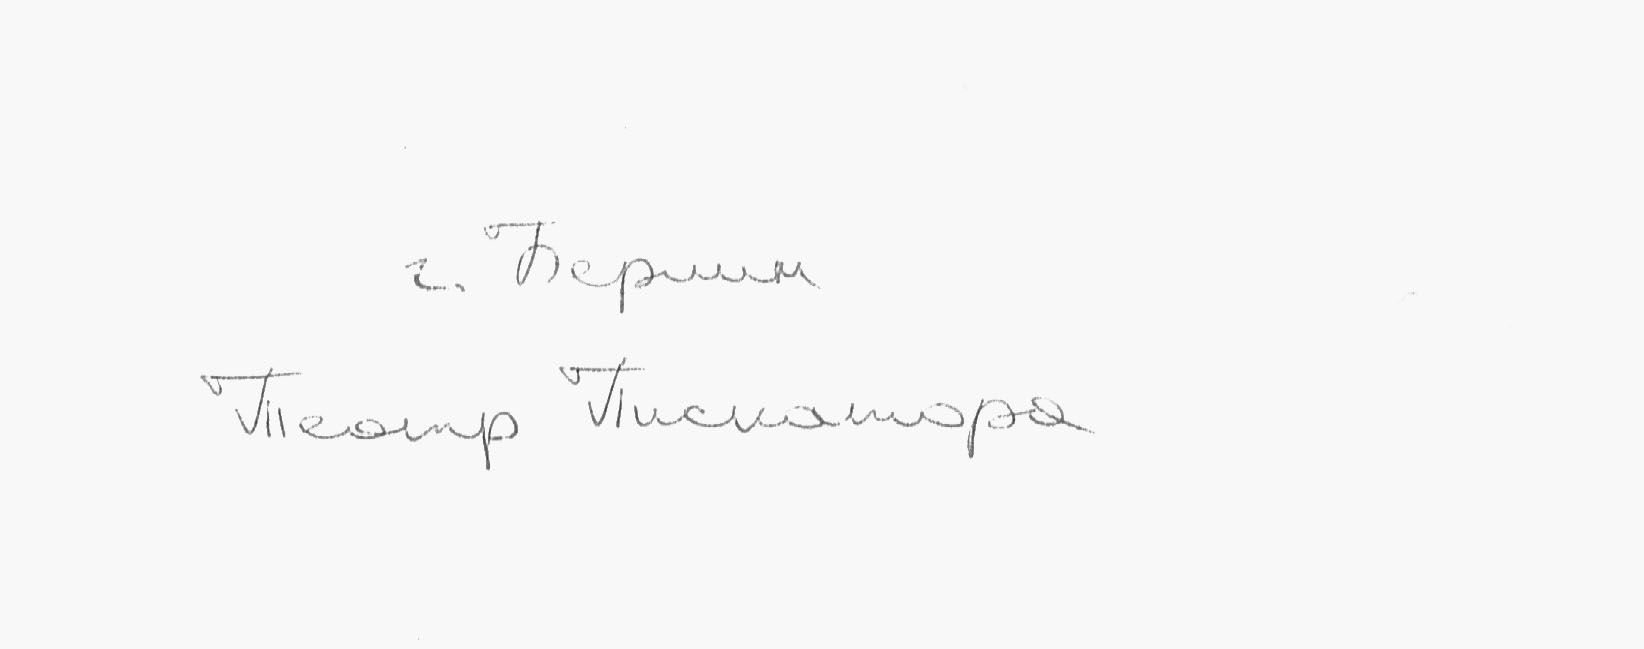 г. Берлин
Театр Пискатора